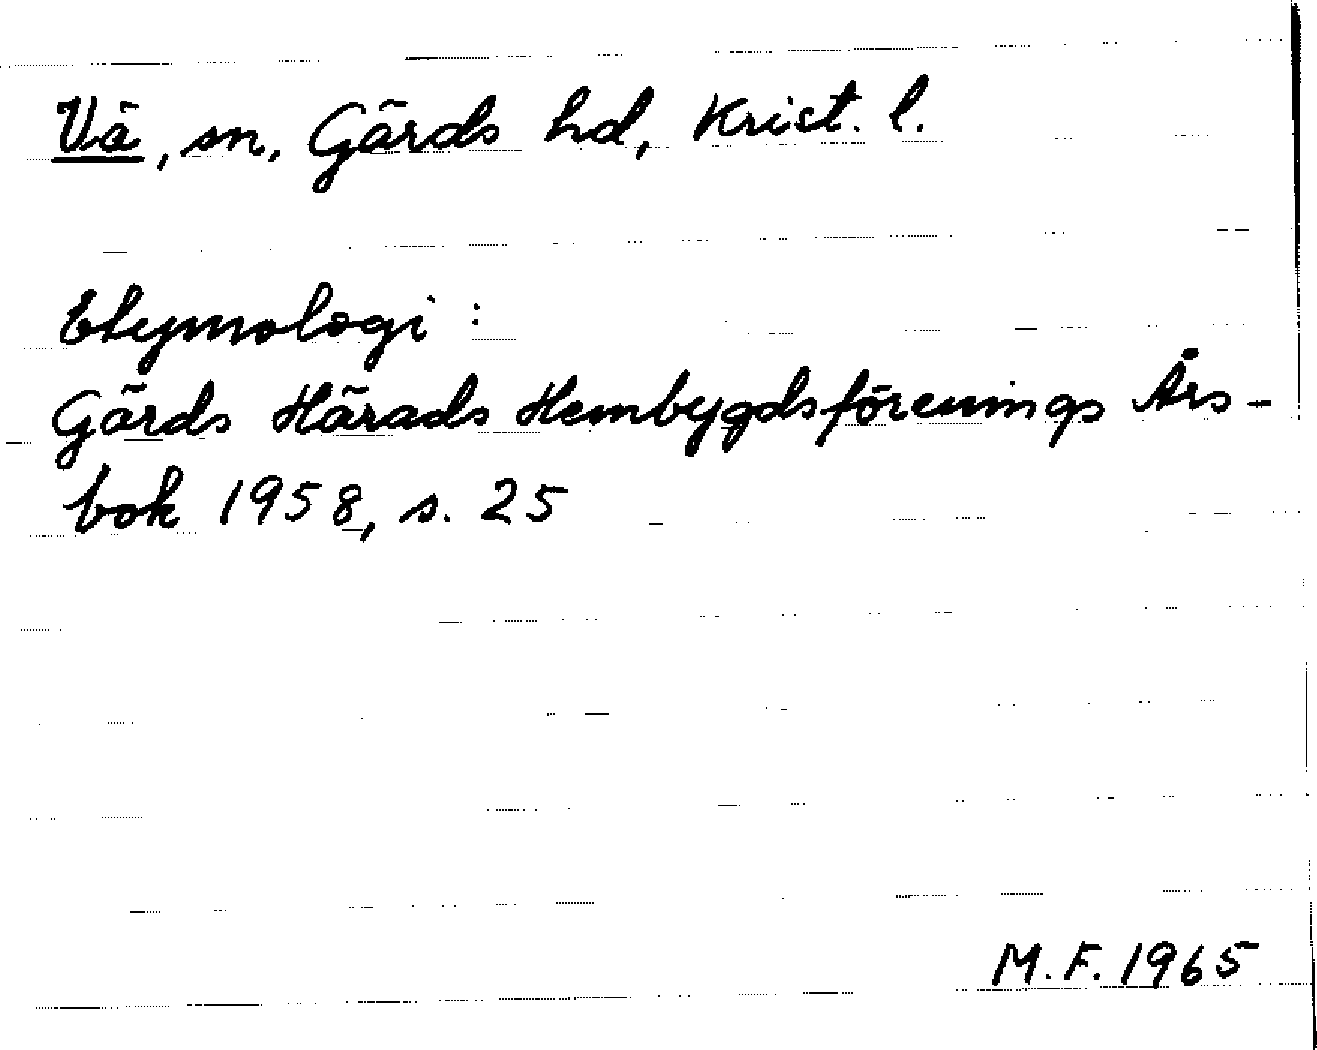 Vä, sn, Gärds hd, Krist. l.
Etymologi:
Gärds Härads Hembygdsförenings Års-
bok 1958, s. 25
M.F. 1965